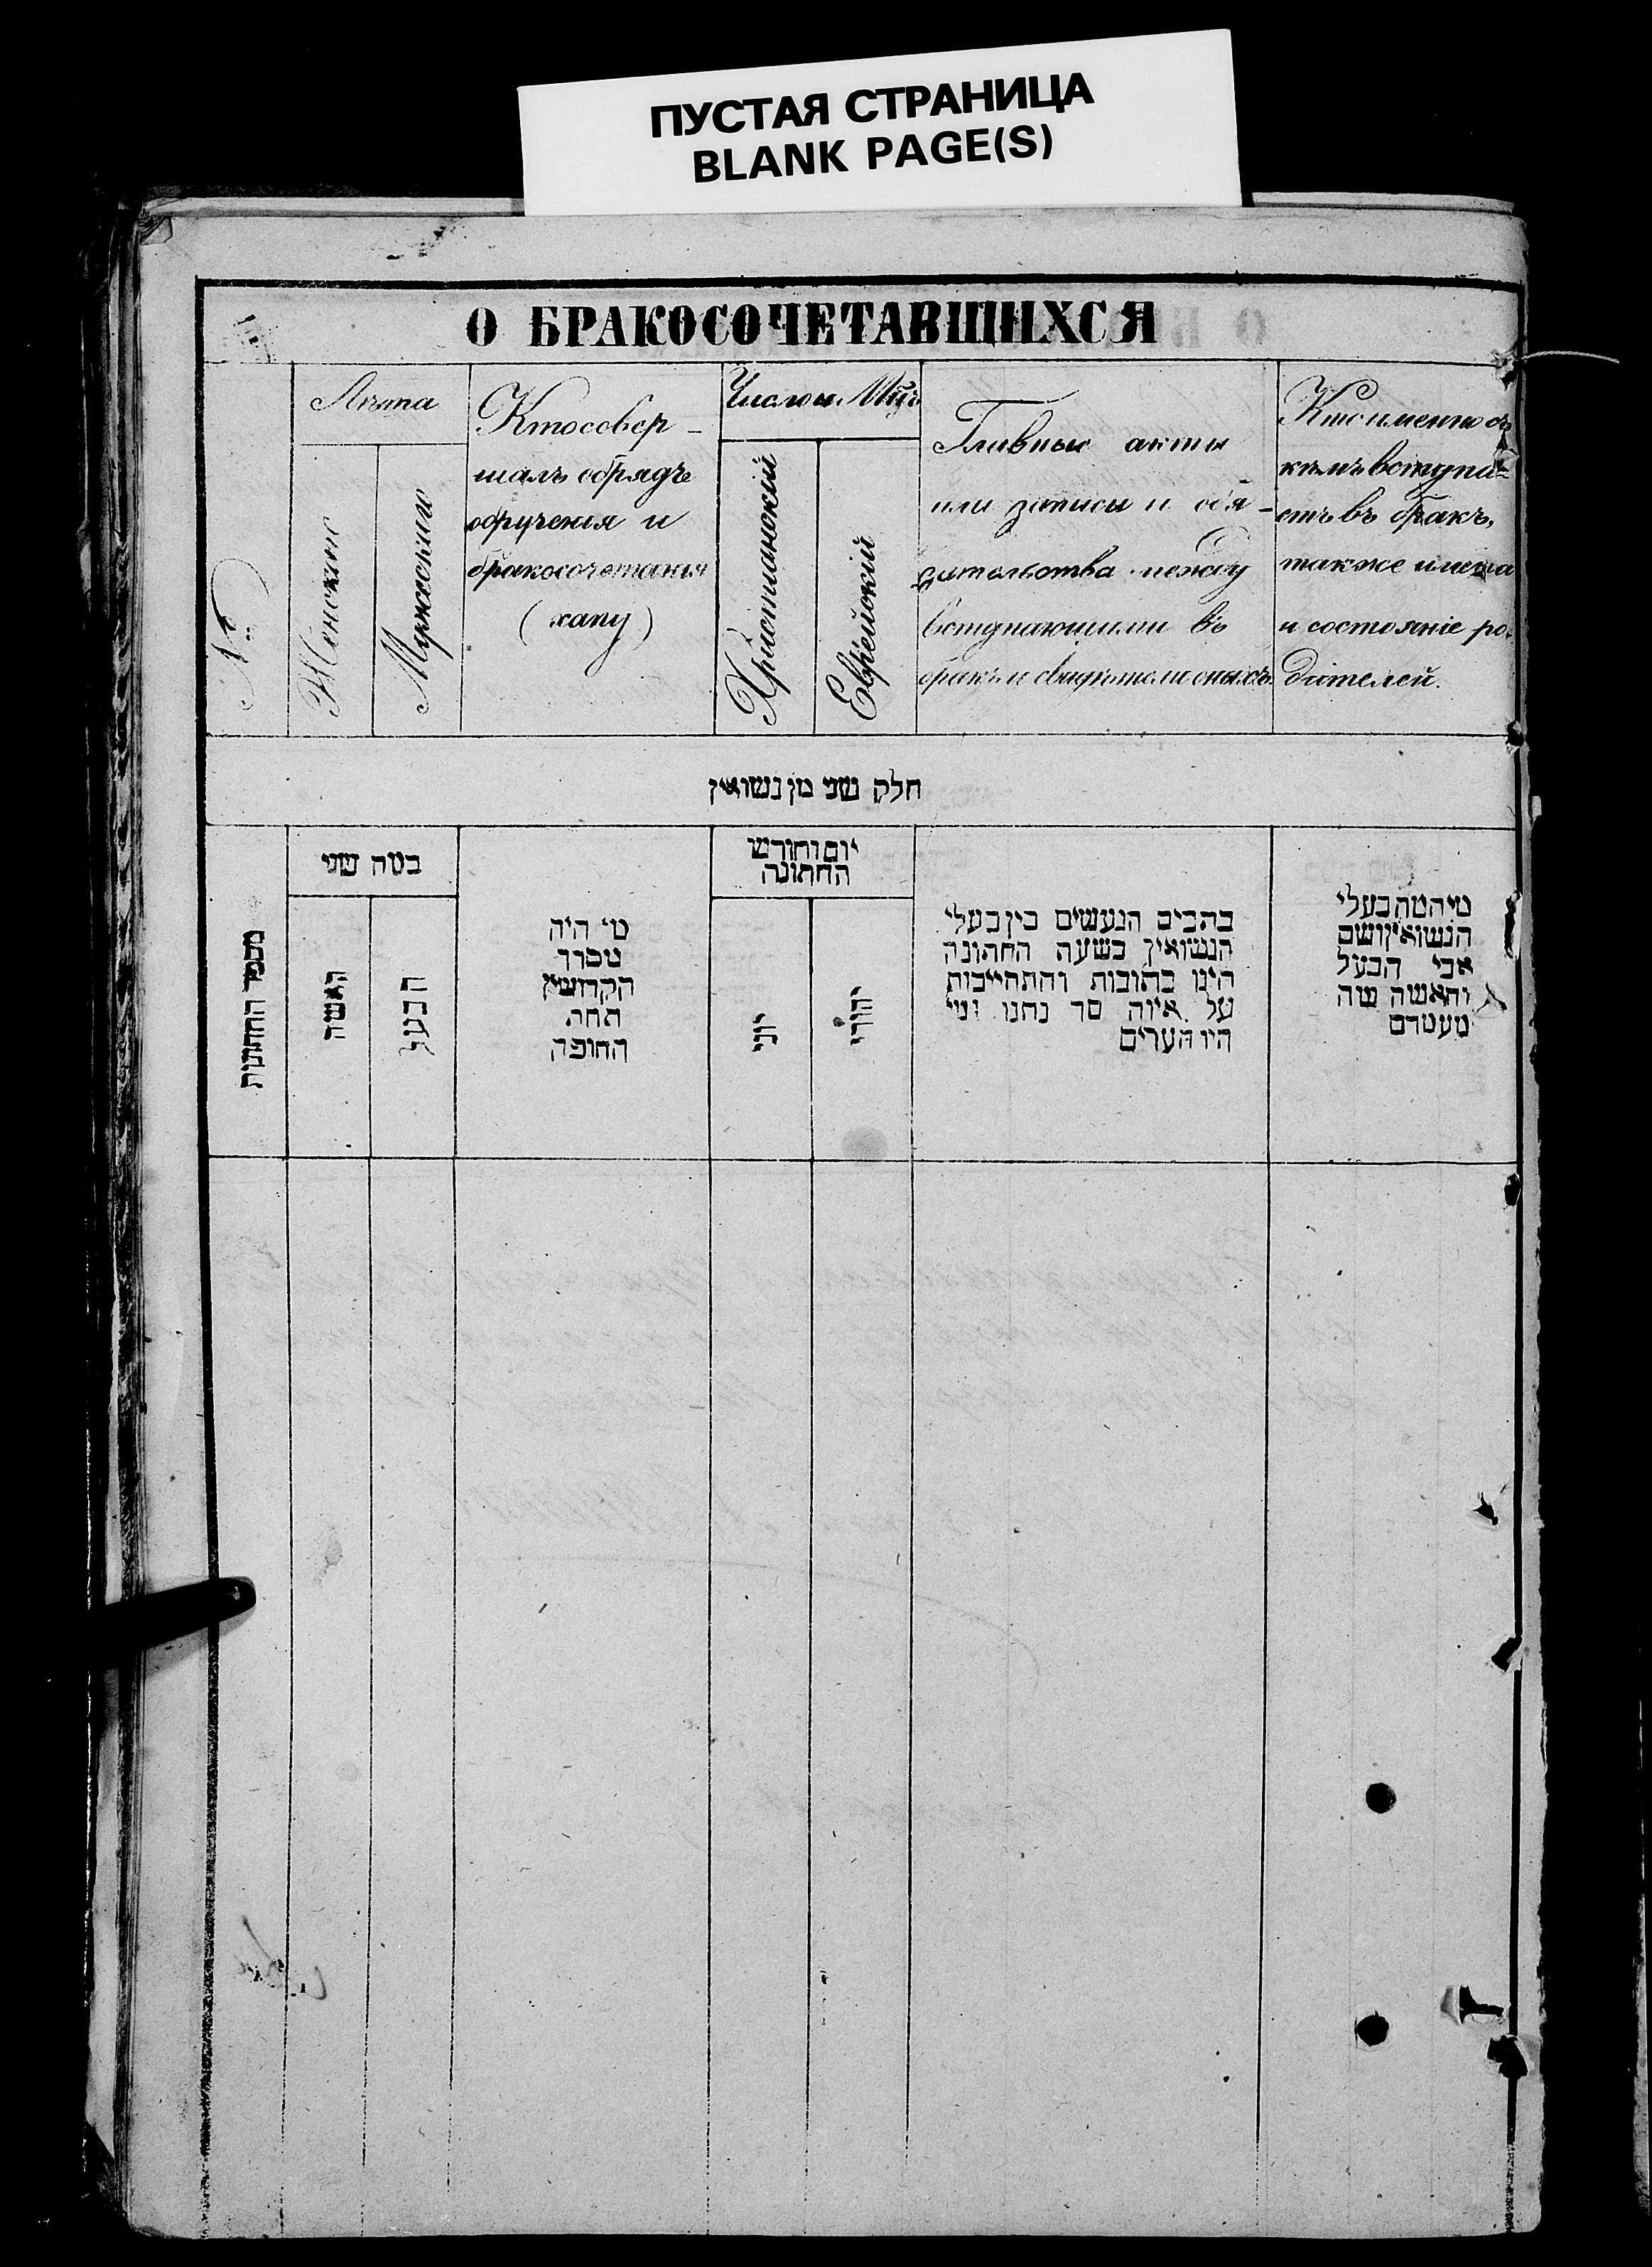 ПУСТАЯ СТРАНИЦА
BLANK PAGE(S)
О БРАКОСОЧЕТАВШИХСЯ
№
Лѣта
Женскаго
Мужескаго
Кто совер-
шалъ обрядъ
обрученія и
бракосочетанія
(хапу)
Число и Мѣц.
Христіанскій
Еврейскій
Главные акты
или записи и обя-
зательства между
вступающими въ
бракъ и свидѣтели оныхъ.
Кто именно съ
кѣмъ вступа-
етъ въ бракъ,
также имена
и состояніе ро-
дителей.
חלק שני מן נשואין
מספר החתונות
במה שני
האשה
הבעל
מי היה
מסדר
הקדושין
תחת
החופה
יום וחודש
החתונה
יוני
יהודי
כתבים הנעשים בין בעלי
הנשואין בשעה החתונה
היינו כתובות והתחייבות
על איזה סך נתנו ומי
היו העדים
מיהמה בעלי
הנשואין ושם
אבי הבעל
והאשה מה
מעמדם